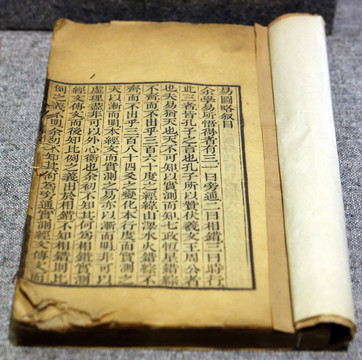 易圖略敘目
余學易所悟得者有三一曰旁通二曰相錯三曰時行
此三者皆孔子之言也孔子所以贊伏羲文王周公者
也夫易猶天也天不可知以實測而知七政恆星錯綜
不齊而不出乎三百六十度之經緯山澤水火錯綜不
齊而不出乎三百八十四爻之變化本行度而實測之
天以漸而明本經文而實測之易亦以漸而明非可以
虛理盡非可以外心衡也余初不知其何爲相錯實測
經文傳文而後知比例之義出於相錯不知相錯則比
例之義不明余初不知其何爲旁通實測經文傳文而